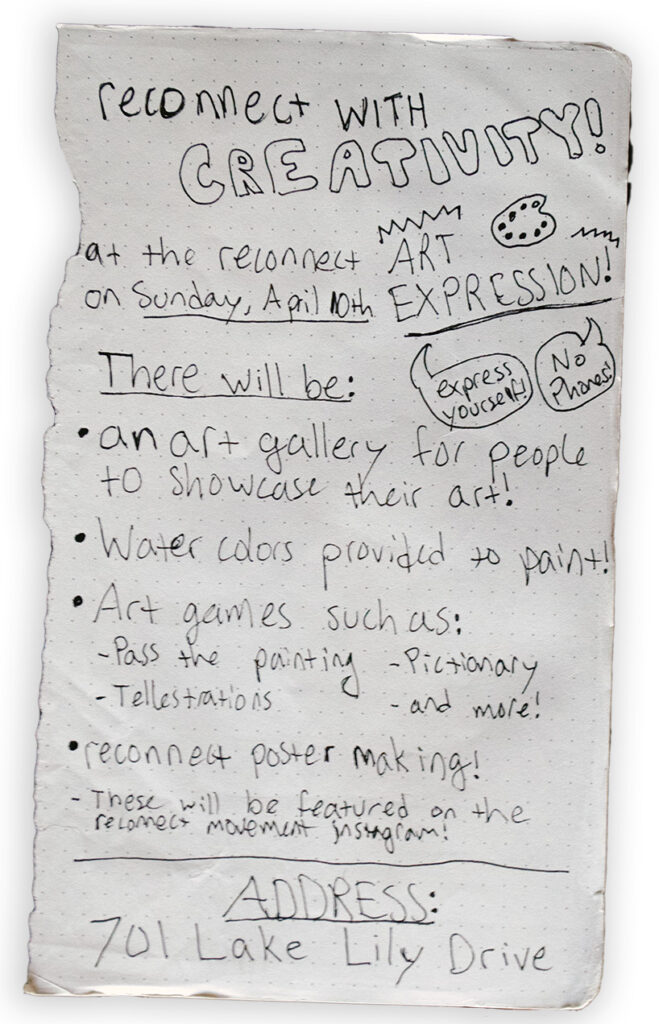 reconnect WITH
CREATIVITY!
at the reconnect ART
on Sunday, April 10th EXPRESSION!
There will be:
express
yourself!
No
Phones!
• an art gallery for people
to showcase their art!
• Water colors provided to paint!
• Art games such as:
- Pass the painting - Pictionary
- Tellestrations - and more!
• reconnect poster making!
- These will be featured on the
reconnect movement instagram!
ADDRESS:
701 Lake Lily Drive